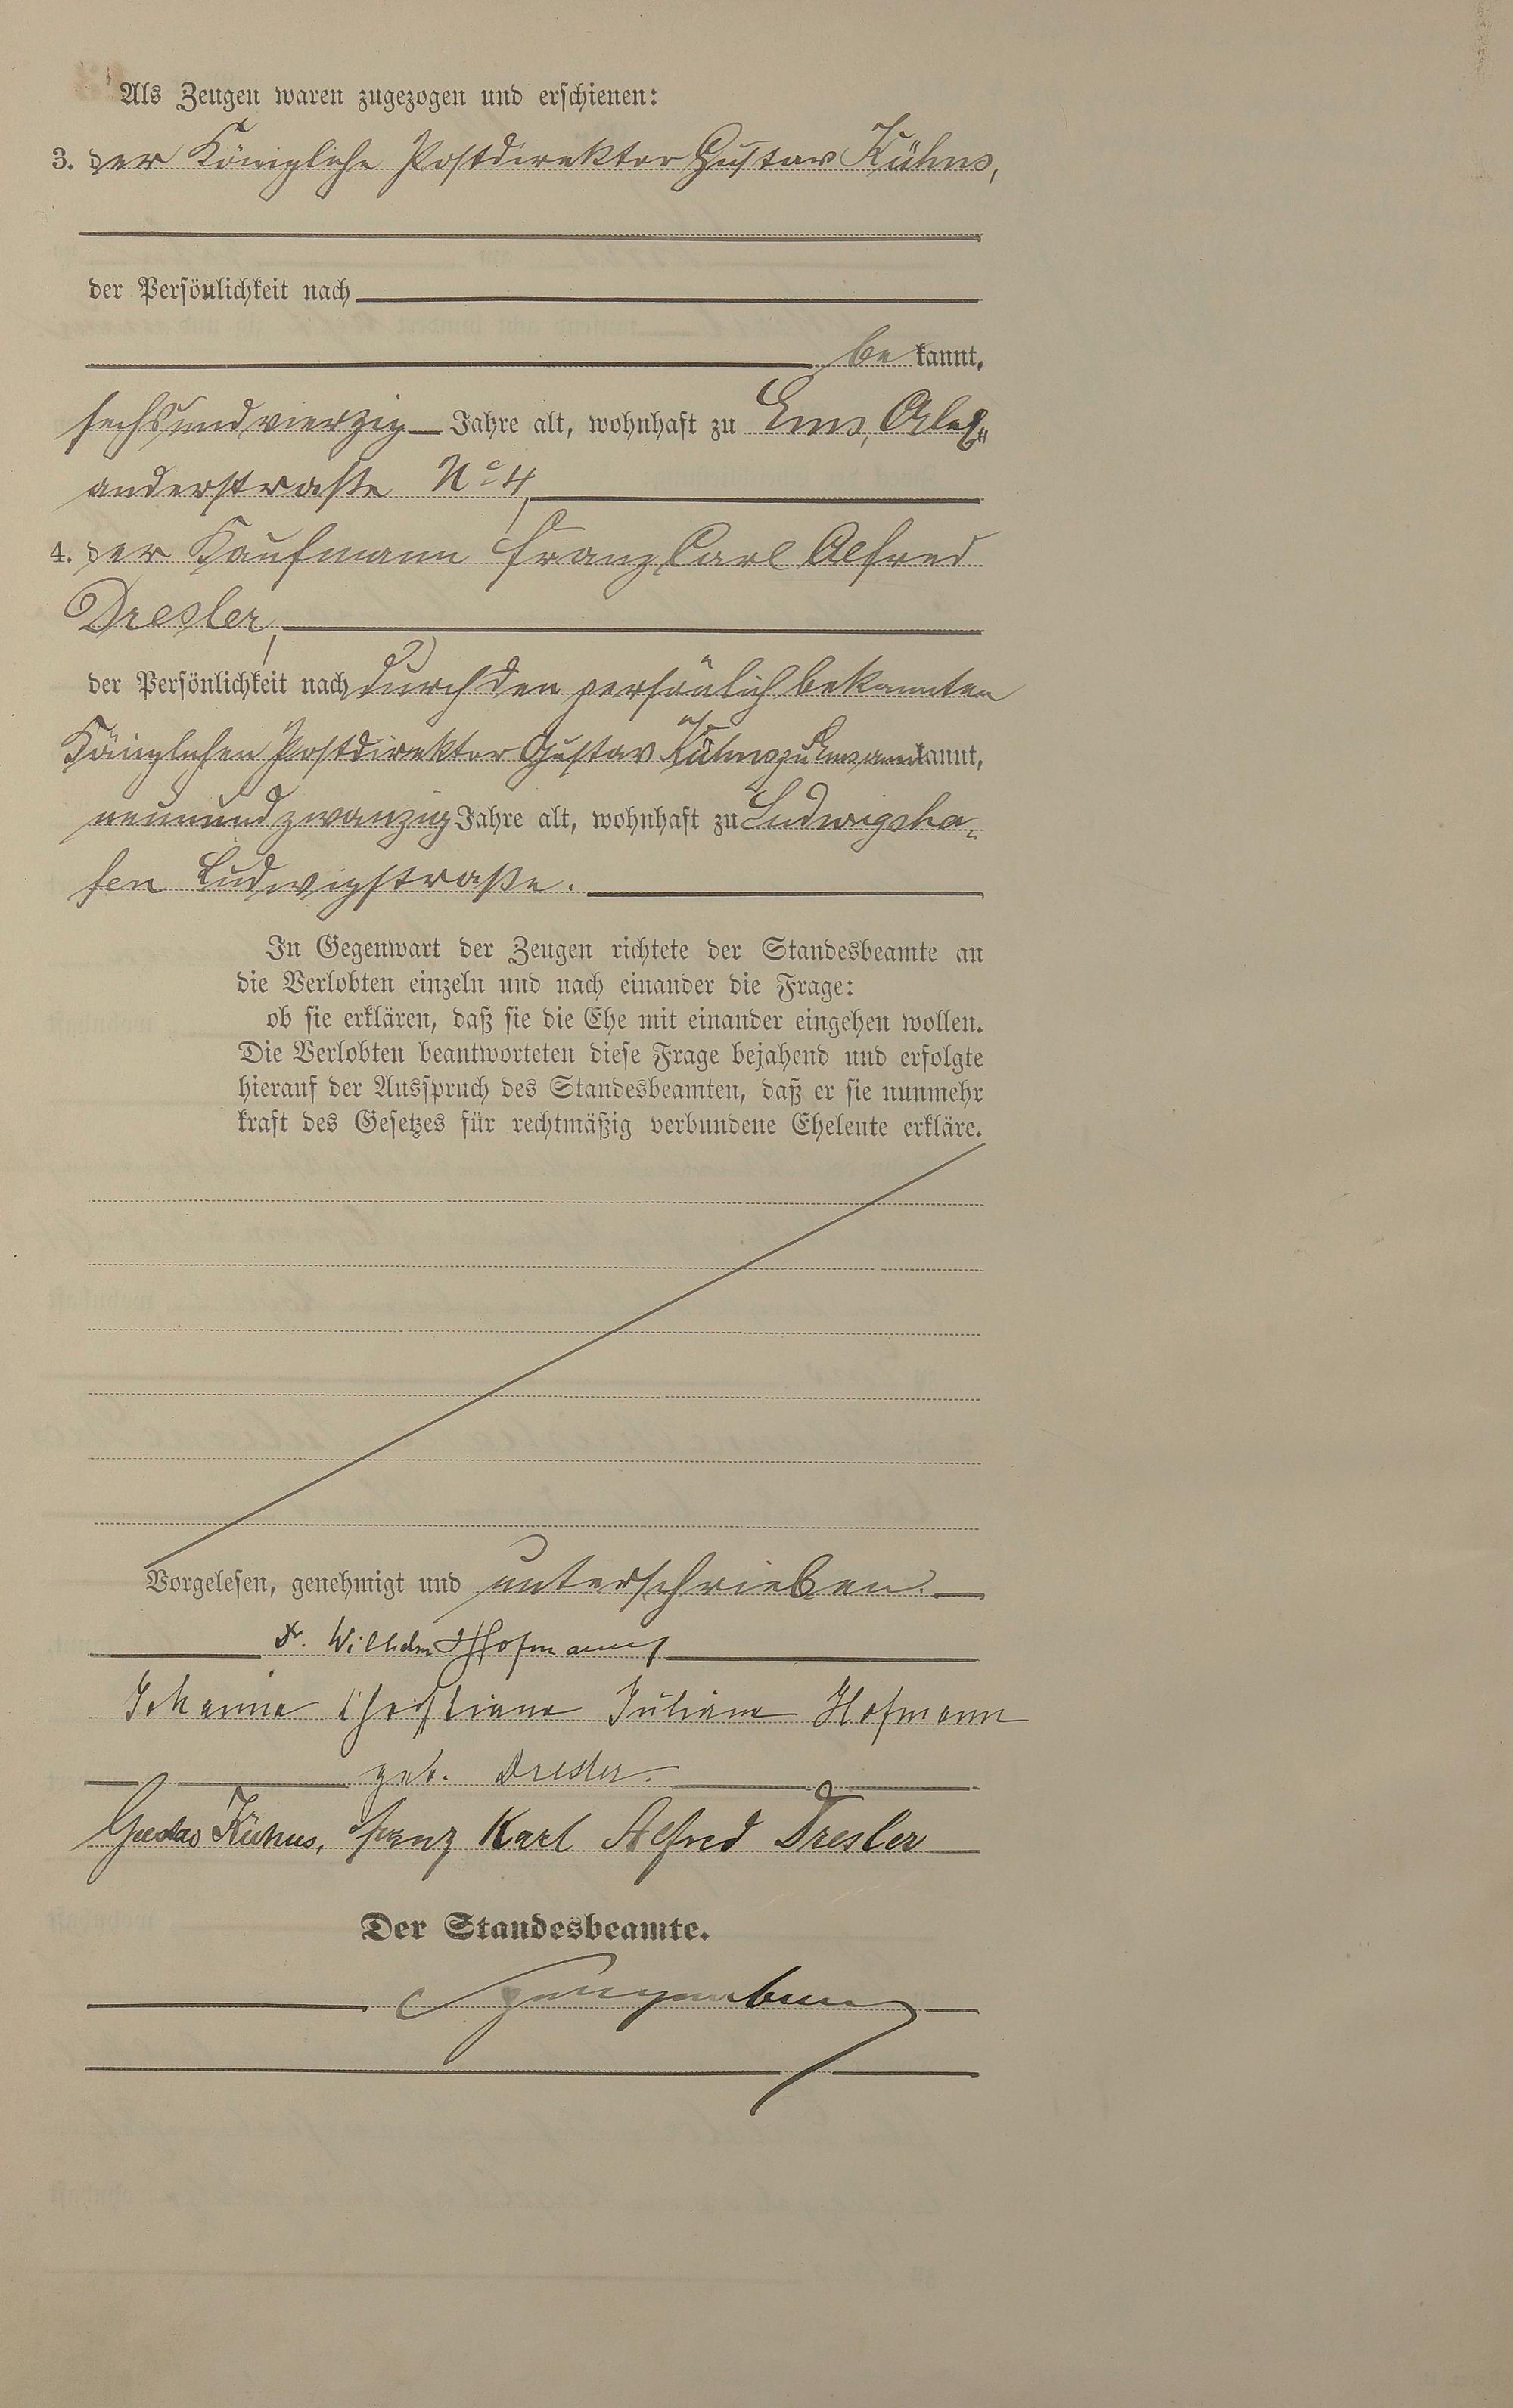 Als Zeugen waren zugezogen und erschienen:
3. der Königliche Postdirektor Gustav Kühns,
der Persönlichkeit nach
be kannt,
sechsundvierzig Jahre alt, wohnhaft zu Ems, Alex-
anderstraße No 4,
4. der Kaufmann Franz Carl Alfred
Dresler,
der Persönlichkeit nach durch den persönlich bekannten
Königlichen Postdirektor Gustav Kühns zu Ems anerkannt,
neunundzwanzig Jahre alt, wohnhaft zu Ludwigsha-
fen Ludwigstraße.
In Gegenwart der Zeugen richtete der Standesbeamte an
die Verlobten einzeln und nach einander die Frage:
ob sie erklären, daß sie die Ehe mit einander eingehen wollen.
Die Verlobten beantworteten diese Frage bejahend und erfolgte
hierauf der Ausspruch des Standesbeamten, daß er sie nunmehr
kraft des Gesetzes für rechtmäßig verbundene Eheleute erkläre.
Vorgelesen, genehmigt und unterschrieben.
Dr. Wilhelm Hofmann
Johanna Christiane Juliane Hofmann
geb. Dresler.
Gustav Kühns, Franz Karl Alfred Dresler
Der Standesbeamte.